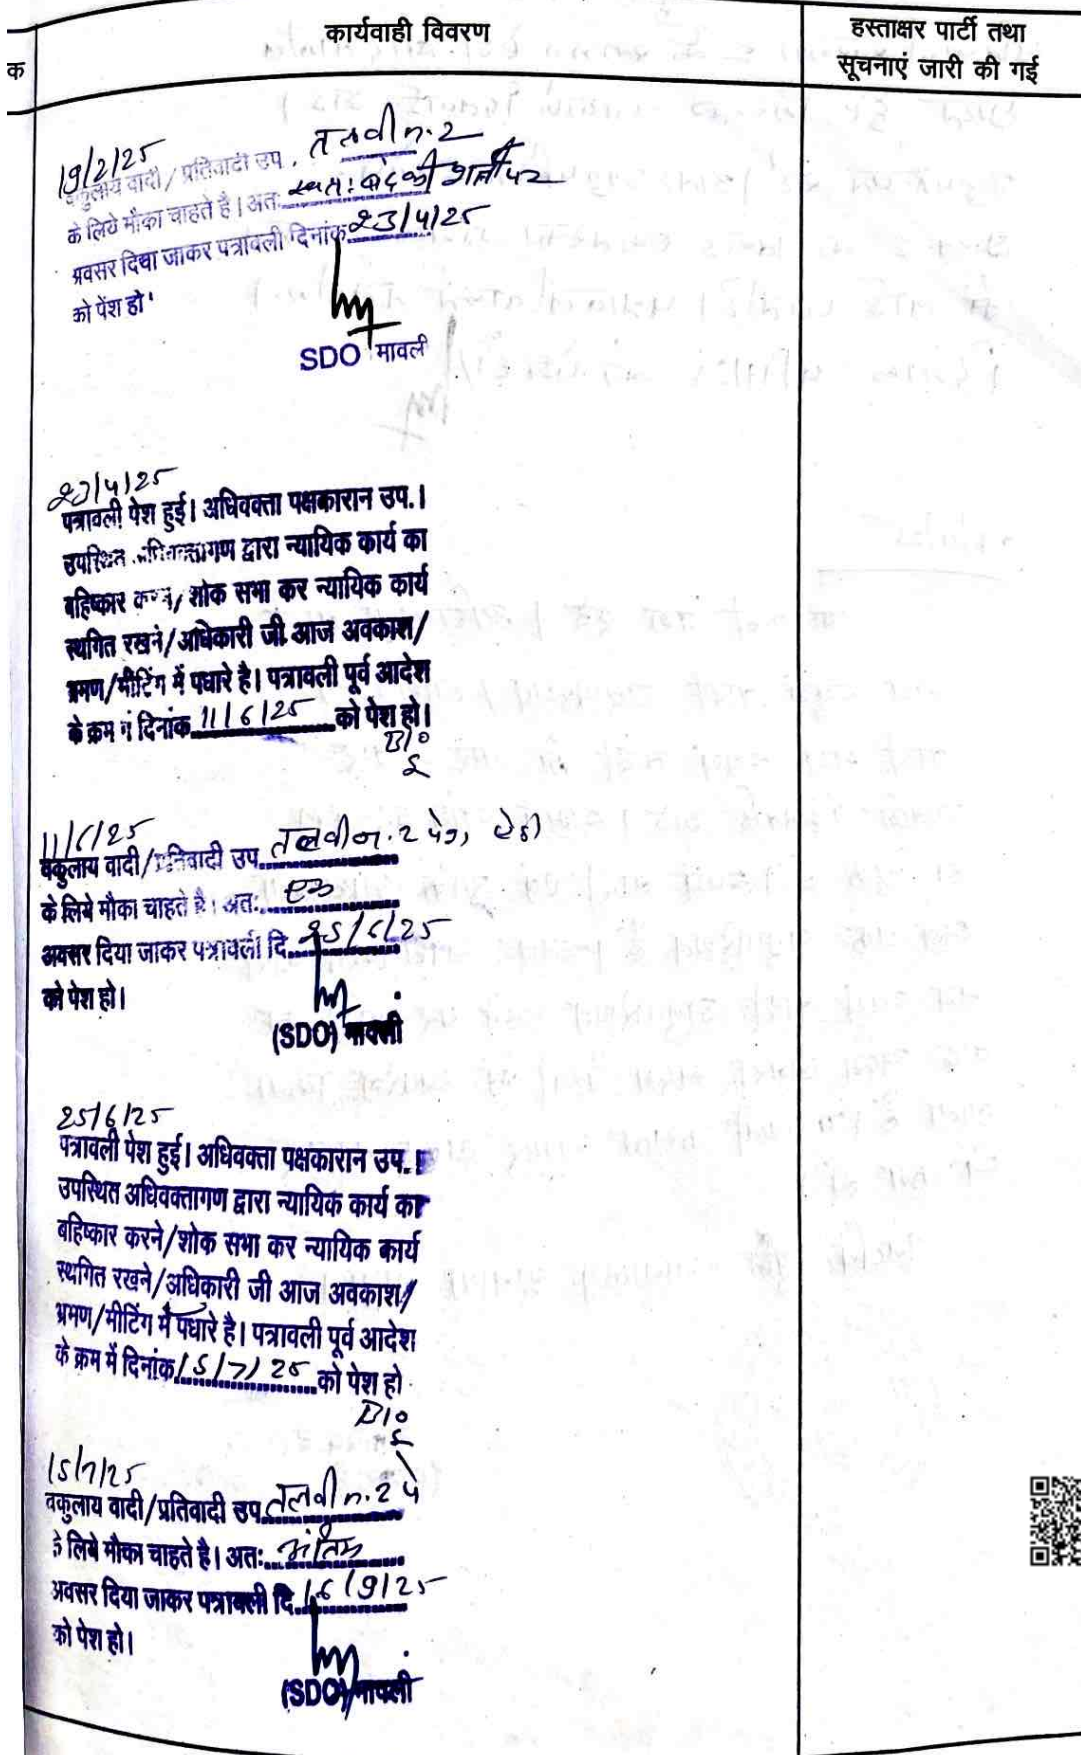 कार्यवाही विवरण
हस्ताक्षर पार्टी तथा
सूचनाएं जारी की गई
क
19/2/25
वकुलाय वादी/प्रतिवादी उप. तलवी न. 2
के लिये मौका चाहते है। अतः
अवसर दिया जाकर पत्रावली दिनांक 23/4/25
को पेंश हो।
SDO मावली
23/4/25
पत्रावली पेश हुई। अधिवक्ता पक्षकारान उप.।
उपस्थित अधिवक्तागण द्वारा न्यायिक कार्य का
बहिष्कार करने/शोक सभा कर न्यायिक कार्य
स्थगित रखने/अधिकारी जी आज अवकाश/
भ्रमण/मीटिंग में पधारे है। पत्रावली पूर्व आदेश
के क्रम में दिनांक 11/6/25 को पेश हो।
11/6/25
वकुलाय वादी/प्रतिवादी उप. तलवी न. 2
के लिये मौका चाहते है। अतः
अवसर दिया जाकर पत्रावली दि. 25/6/25
को पेश हो।
(SDO) मावली
25/6/25
पत्रावली पेश हुई। अधिवक्ता पक्षकारान उप.।
उपस्थित अधिवक्तागण द्वारा न्यायिक कार्य का
बहिष्कार करने/शोक सभा कर न्यायिक कार्य
स्थगित रखने/अधिकारी जी आज अवकाश/
भ्रमण/मीटिंग में पधारे है। पत्रावली पूर्व आदेश
के क्रम में दिनांक 15/7/25 को पेश हो
15/7/25
वकुलाय वादी/प्रतिवादी उप. तलवी न. 2 पे
के लिये मौका चाहते है। अतः अंतिम
अवसर दिया जाकर पत्रावली दि. 16/9/25
को पेश हो।
(SDO) मावली